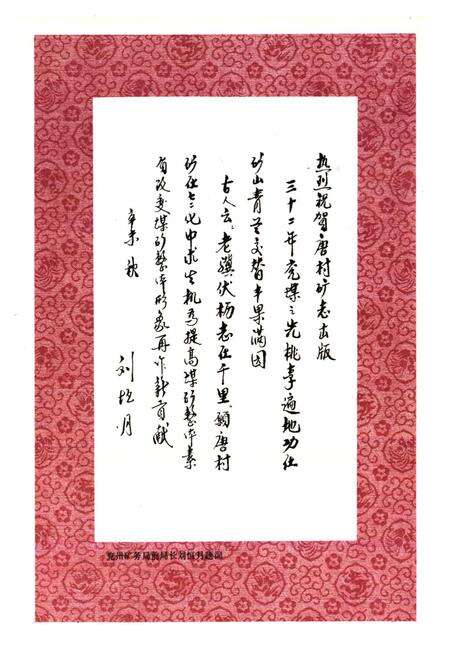 热烈祝贺唐村矿志出版
三十二年兖煤之先桃李遍地功在
矿山青蓝交替丰果满园
古人云:老骥伏枥志在千里,愿唐村
矿在七二化中求生机为提高煤矿整体素
有改变煤矿整体形象再作新贡献
辛未秋
刘恒月
兖州矿务局前局长刘恒月题词